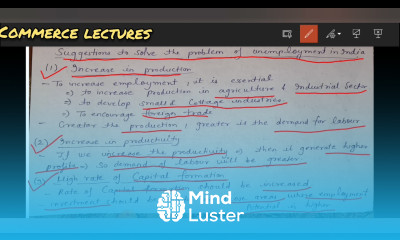 COMMERCE LECTURES
Suggestions to solve the problem of unemployment in India
(1) Increase in production
- To increase employment, it is esential
⇒ to increase production in agriculture & Industrial Sector
⇒ to develop small & Cottage industries
⇒ To encourage foreign trade
- Greater the production, greater is the demand for labour
(2) Increase in productivity
- If we increase the productivity ⇒ then it generate higher
profits ⇒ So demand of labour will be greater
High rate of Capital formation
- Rate of Capital formation should be increased
investment should be areas, where employment
potential is higher
Mind
Luster